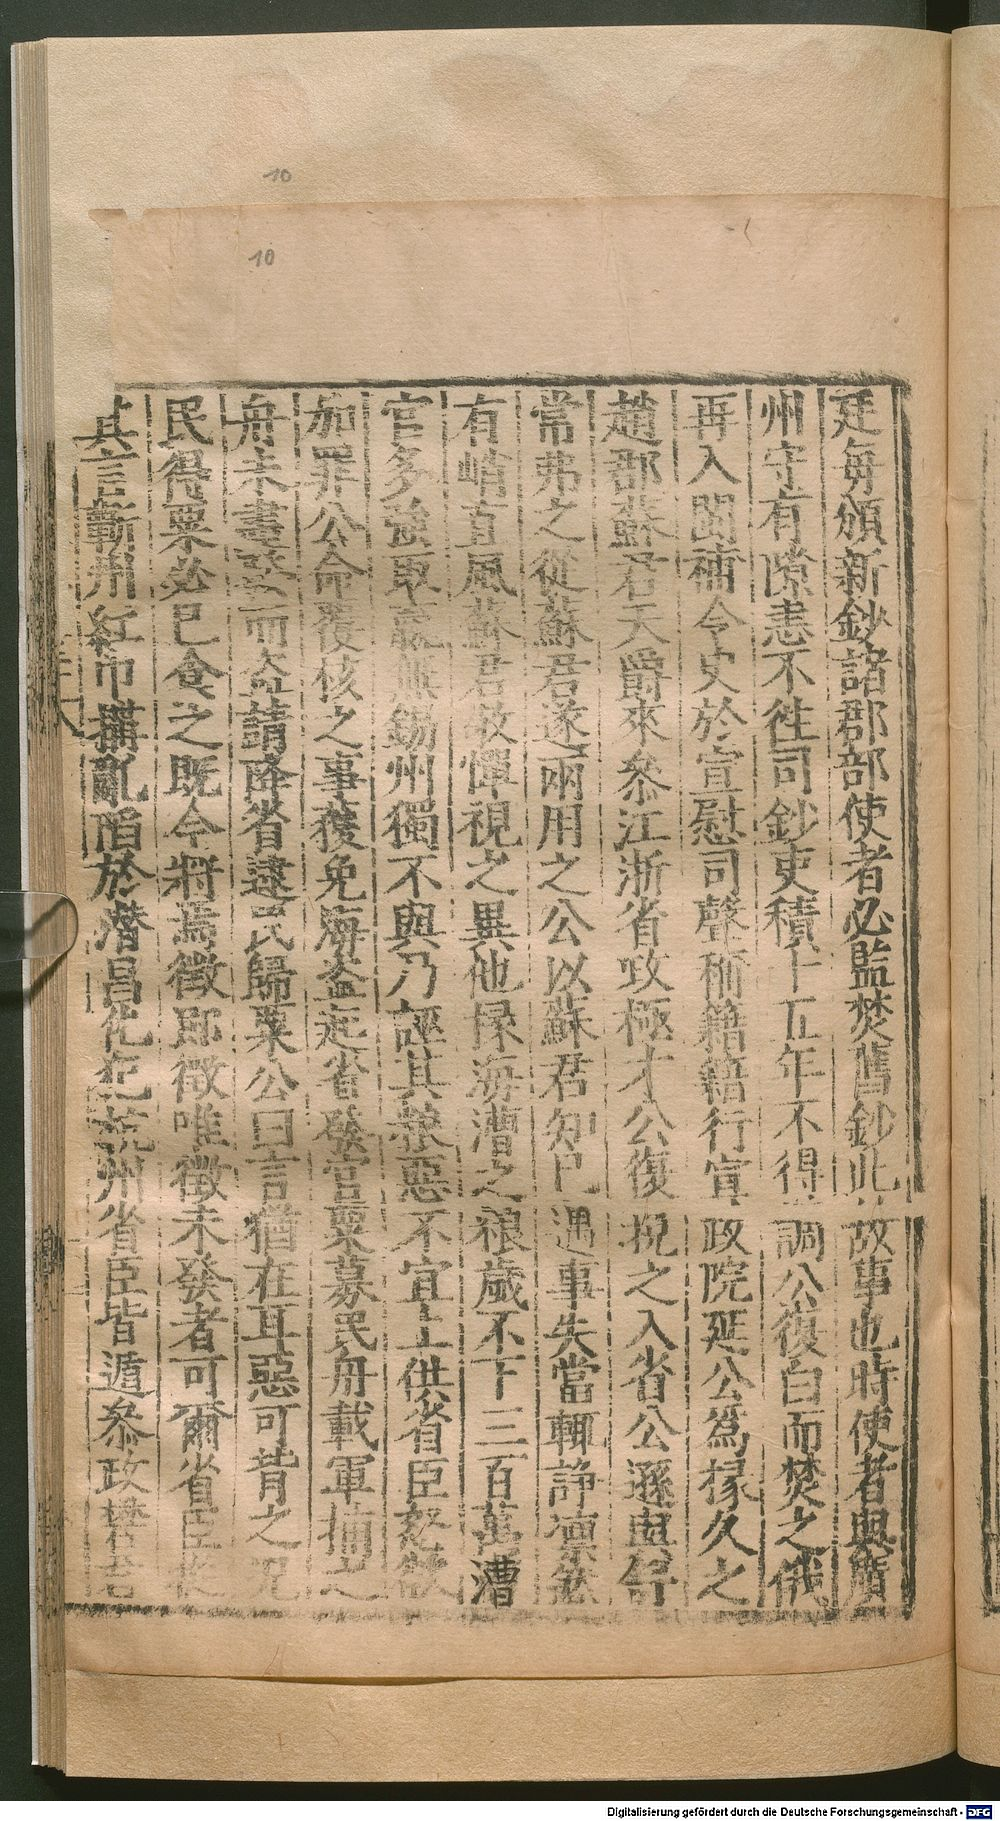 10
10
廷每頒新鈔諸郡部使者必監焚舊鈔此故事也時使者與廣
州守有隙恚不徃司鈔吏積十五年不得調公復白而焚之俄
再入閩補令史於宣慰司聲稱籍籍行宣政院延公爲掾久之
趙郡蘇君天爵來叅江浙省政極才公復挽之入省公遜與舒
常弗之從蘇君遂兩用之公以蘇君知巳遇事失當輒諍凜然
有峭直風蘇君敬憚視之異他掾海漕之粮歲不下三百萬漕
官多強取羸無錫州獨不與乃誣其粮惡不宜上供省臣怒欲
加罪公命覆核之事獲免海盗起省發官粟募民舟載軍捕之
舟未盡發而盗請降省逮民歸粟公曰言猶在耳惡可昔之况
民得粟必巳食之既今將焉徵耶徵唯徵未發者可爾省臣從
其言蘄州紅巾搆亂陷於潜昌化犯杭州省臣皆遁叅政樊君
Digitalisierung gefördert durch die Deutsche Forschungsgemeinschaft - DFG